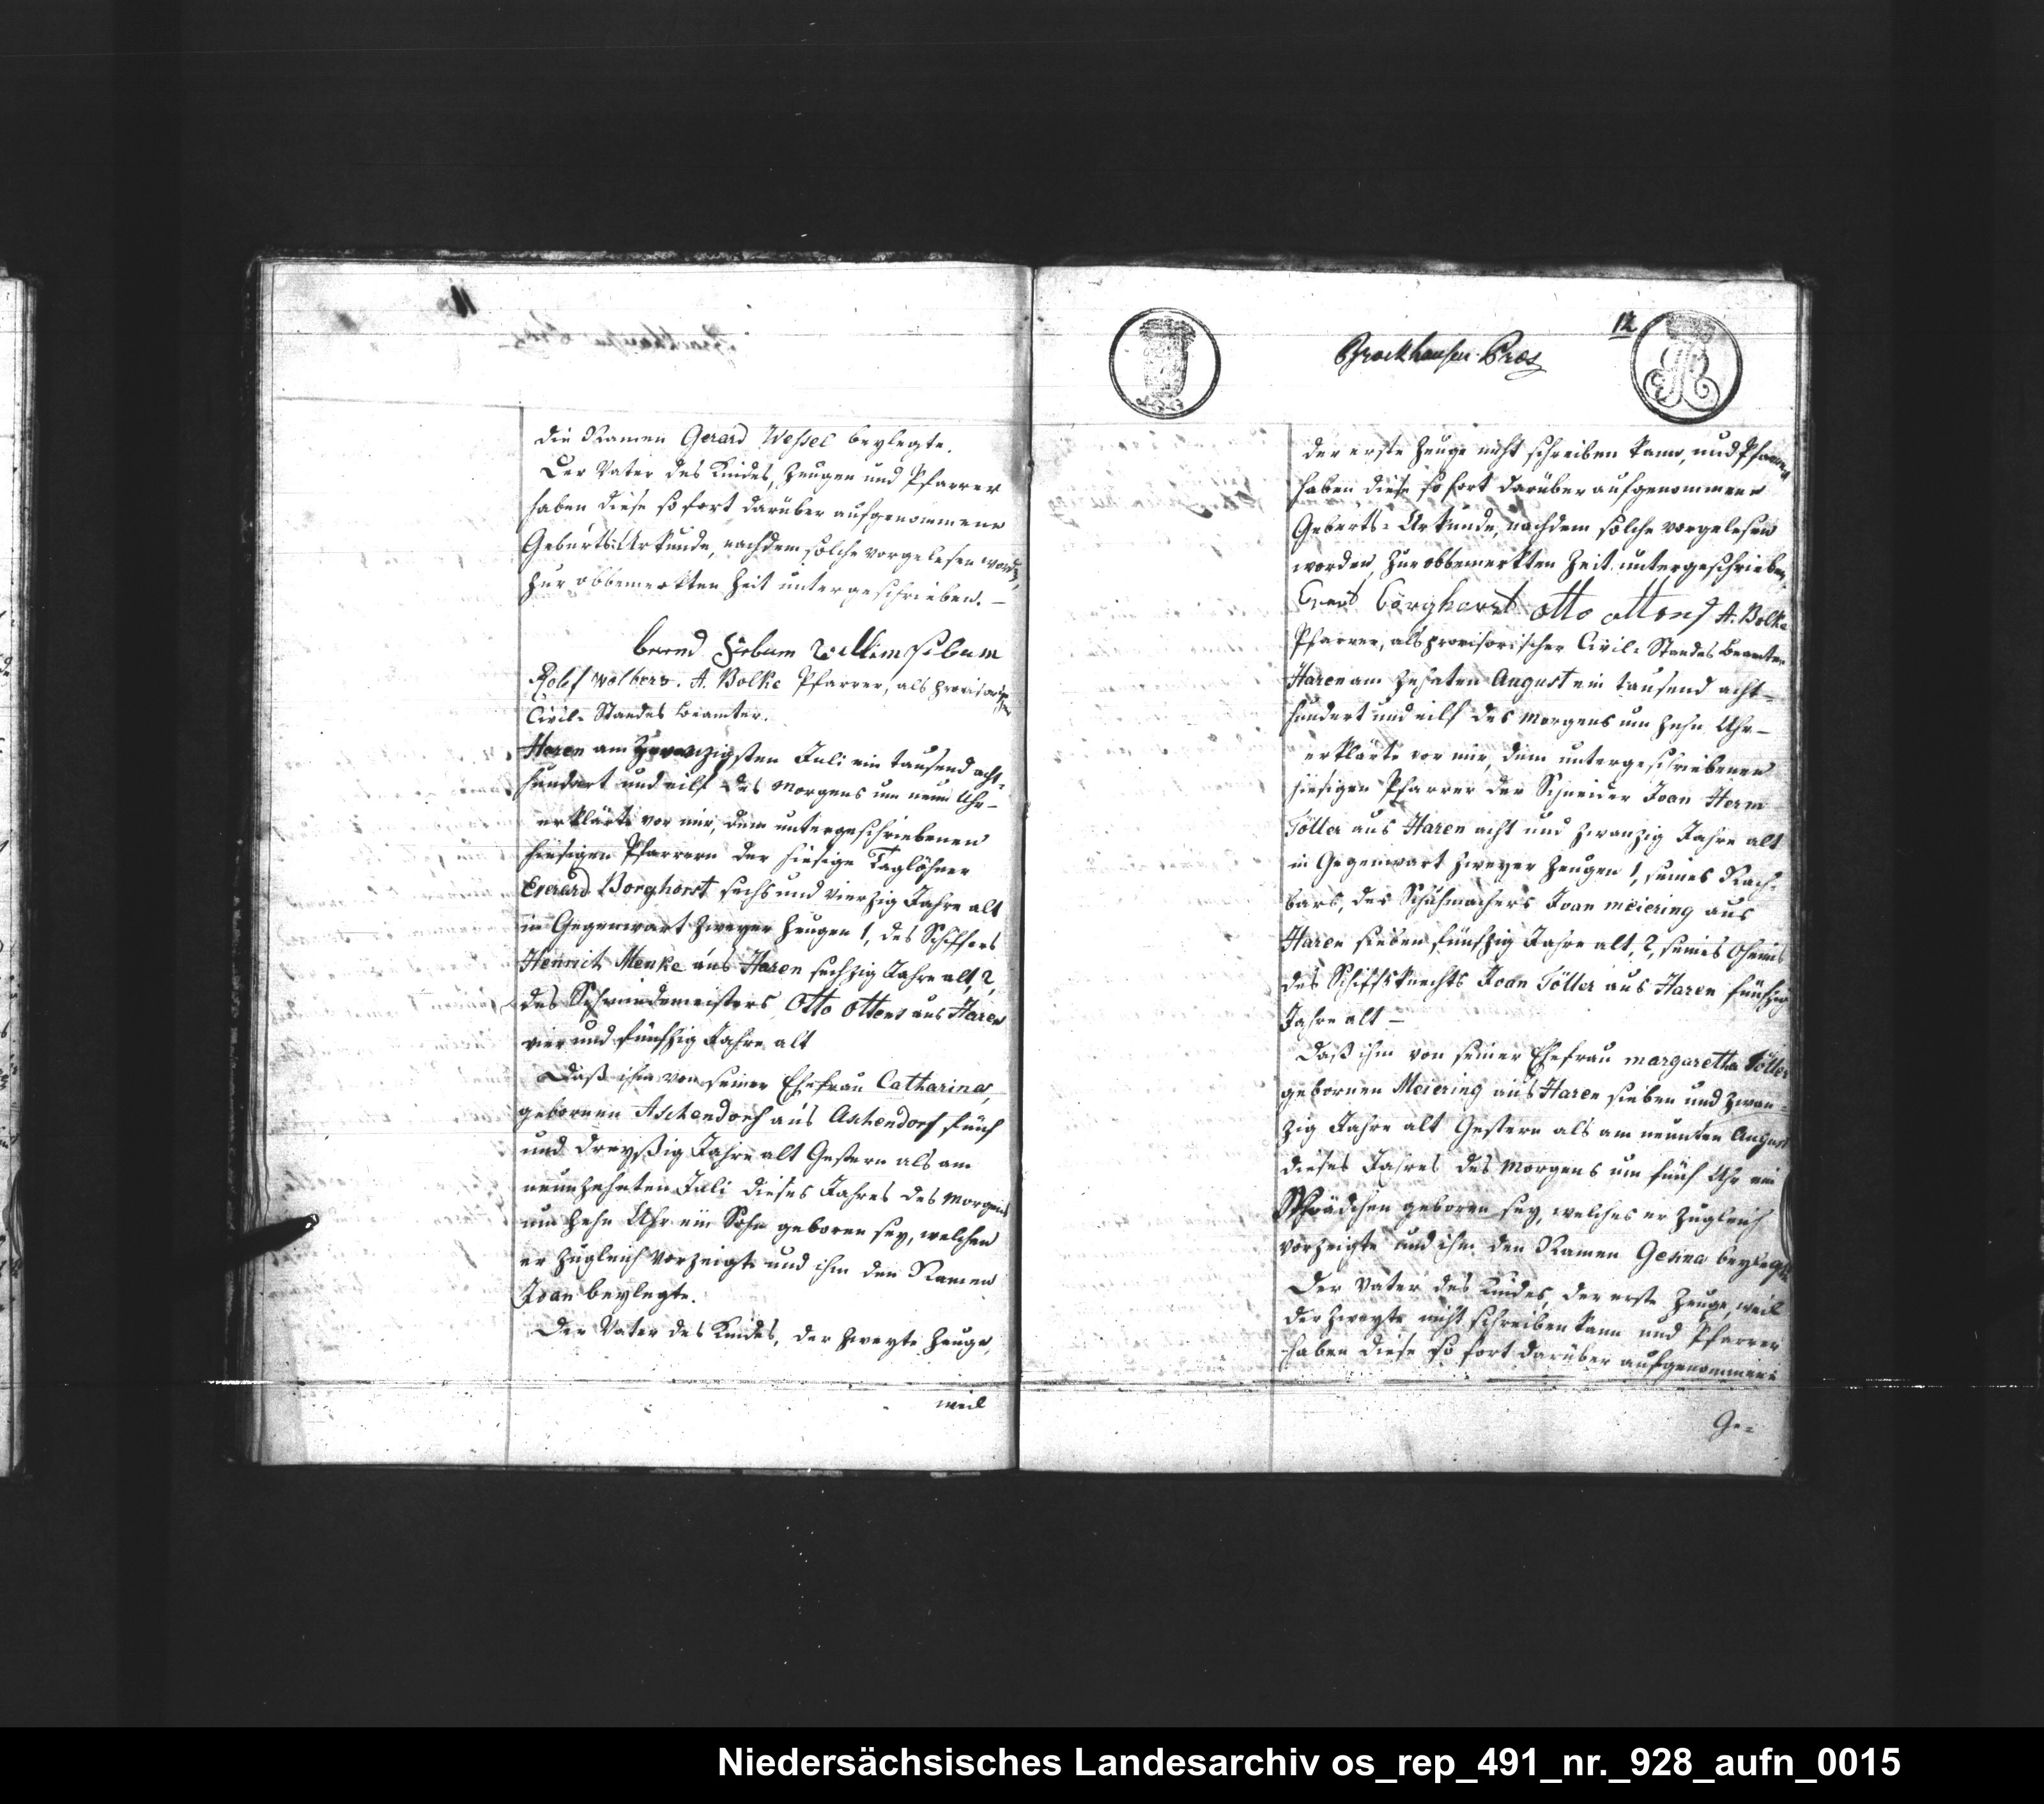 11
die Namen Gerard Wessel beylegte.
Der Vater des Kindes, Zeugen und Pfarrer
haben diese so fort darüber aufgenommene
Geburts-Urkunde, nachdem solche vorgelesen worden,
zur obbemerkten Zeit untergeschrieben. —
berend Siebum willim sibum
Rolef Wolbers. A. Bolke Pfarrer, als provisorischer
Civil-Standes Beamter.
Haren am zwanzigsten Juli ein tausend acht-
hundert und eilf des Morgens um neun Uhr —
erklärte vor mir, dem untergeschriebenen
hiesigen Pfarrern der hiesige Taglöhner
Everard Borghorst sechs und vierzig Jahre alt
in Gegenwart zweyer Zeugen 1, des Schiffers
Henrich Menke aus Haren sechzig Jahre alt, 2,
des Schmiedemeisters Otto Ottens aus Haren
vier und fünfzig Jahre alt
Daß ihm von seiner Ehefrau Catharina,
gebornen Aschendorf aus Aschendorf fünf
und dreyßig Jahre alt Gestern als am
neunzehnten Juli dieses Jahres des Morgens
um zehn Uhr ein Sohn geboren sey, welchen
er zugleich vorzeigte und ihm den Namen
Joan beylegte.
Der Vater des Kindes, der zweyte Zeuge,
weil
12
Brockhausen Präs
der erste Zeuge nicht schreiben kann, und Pfarrer
haben diese so fort darüber aufgenommene
Geburts-Urkunde, nachdem solche vorgelesen
worden, zur obbemerkten Zeit untergeschrieben.
Evert Borghorst otto ottens A. Bolke
Pfarrer, als provisorischer Civil-Standes Beamter
Haren am zehnten August ein tausend acht-
hundert und eilf des Morgens um zehn Uhr —
erklärte vor mir, dem untergeschriebenen
hiesigen Pfarrer der Schneider Joan Herm
Töller aus Haren acht und zwanzig Jahre alt
in Gegenwart zweyer Zeugen 1, seines Nach-
bars, des Schuhmachers Joan Meiering aus
Haren sieben fünfzig Jahre alt, 2, seines Oheims
des Schiffsknechts Joan Töller aus Haren fünfzig
Jahre alt —
Daß ihm von seiner Ehefrau Margaretha Töller
gebornen Meiering aus Haren sieben und zwan-
zig Jahre alt Gestern als am neunten August
dieses Jahres des Morgens um fünf Uhr ein
Mädchen geboren sey, welches er zugleich
vorzeigte und ihm den Namen Gesina beylegte
Der Vater des Kindes, der erste Zeuge, weil
der zweyte nicht schreiben kann und Pfarrer
haben diese so fort darüber aufgenommene
Ge-
Niedersächsisches Landesarchiv os_rep_491_nr._928_aufn_0015